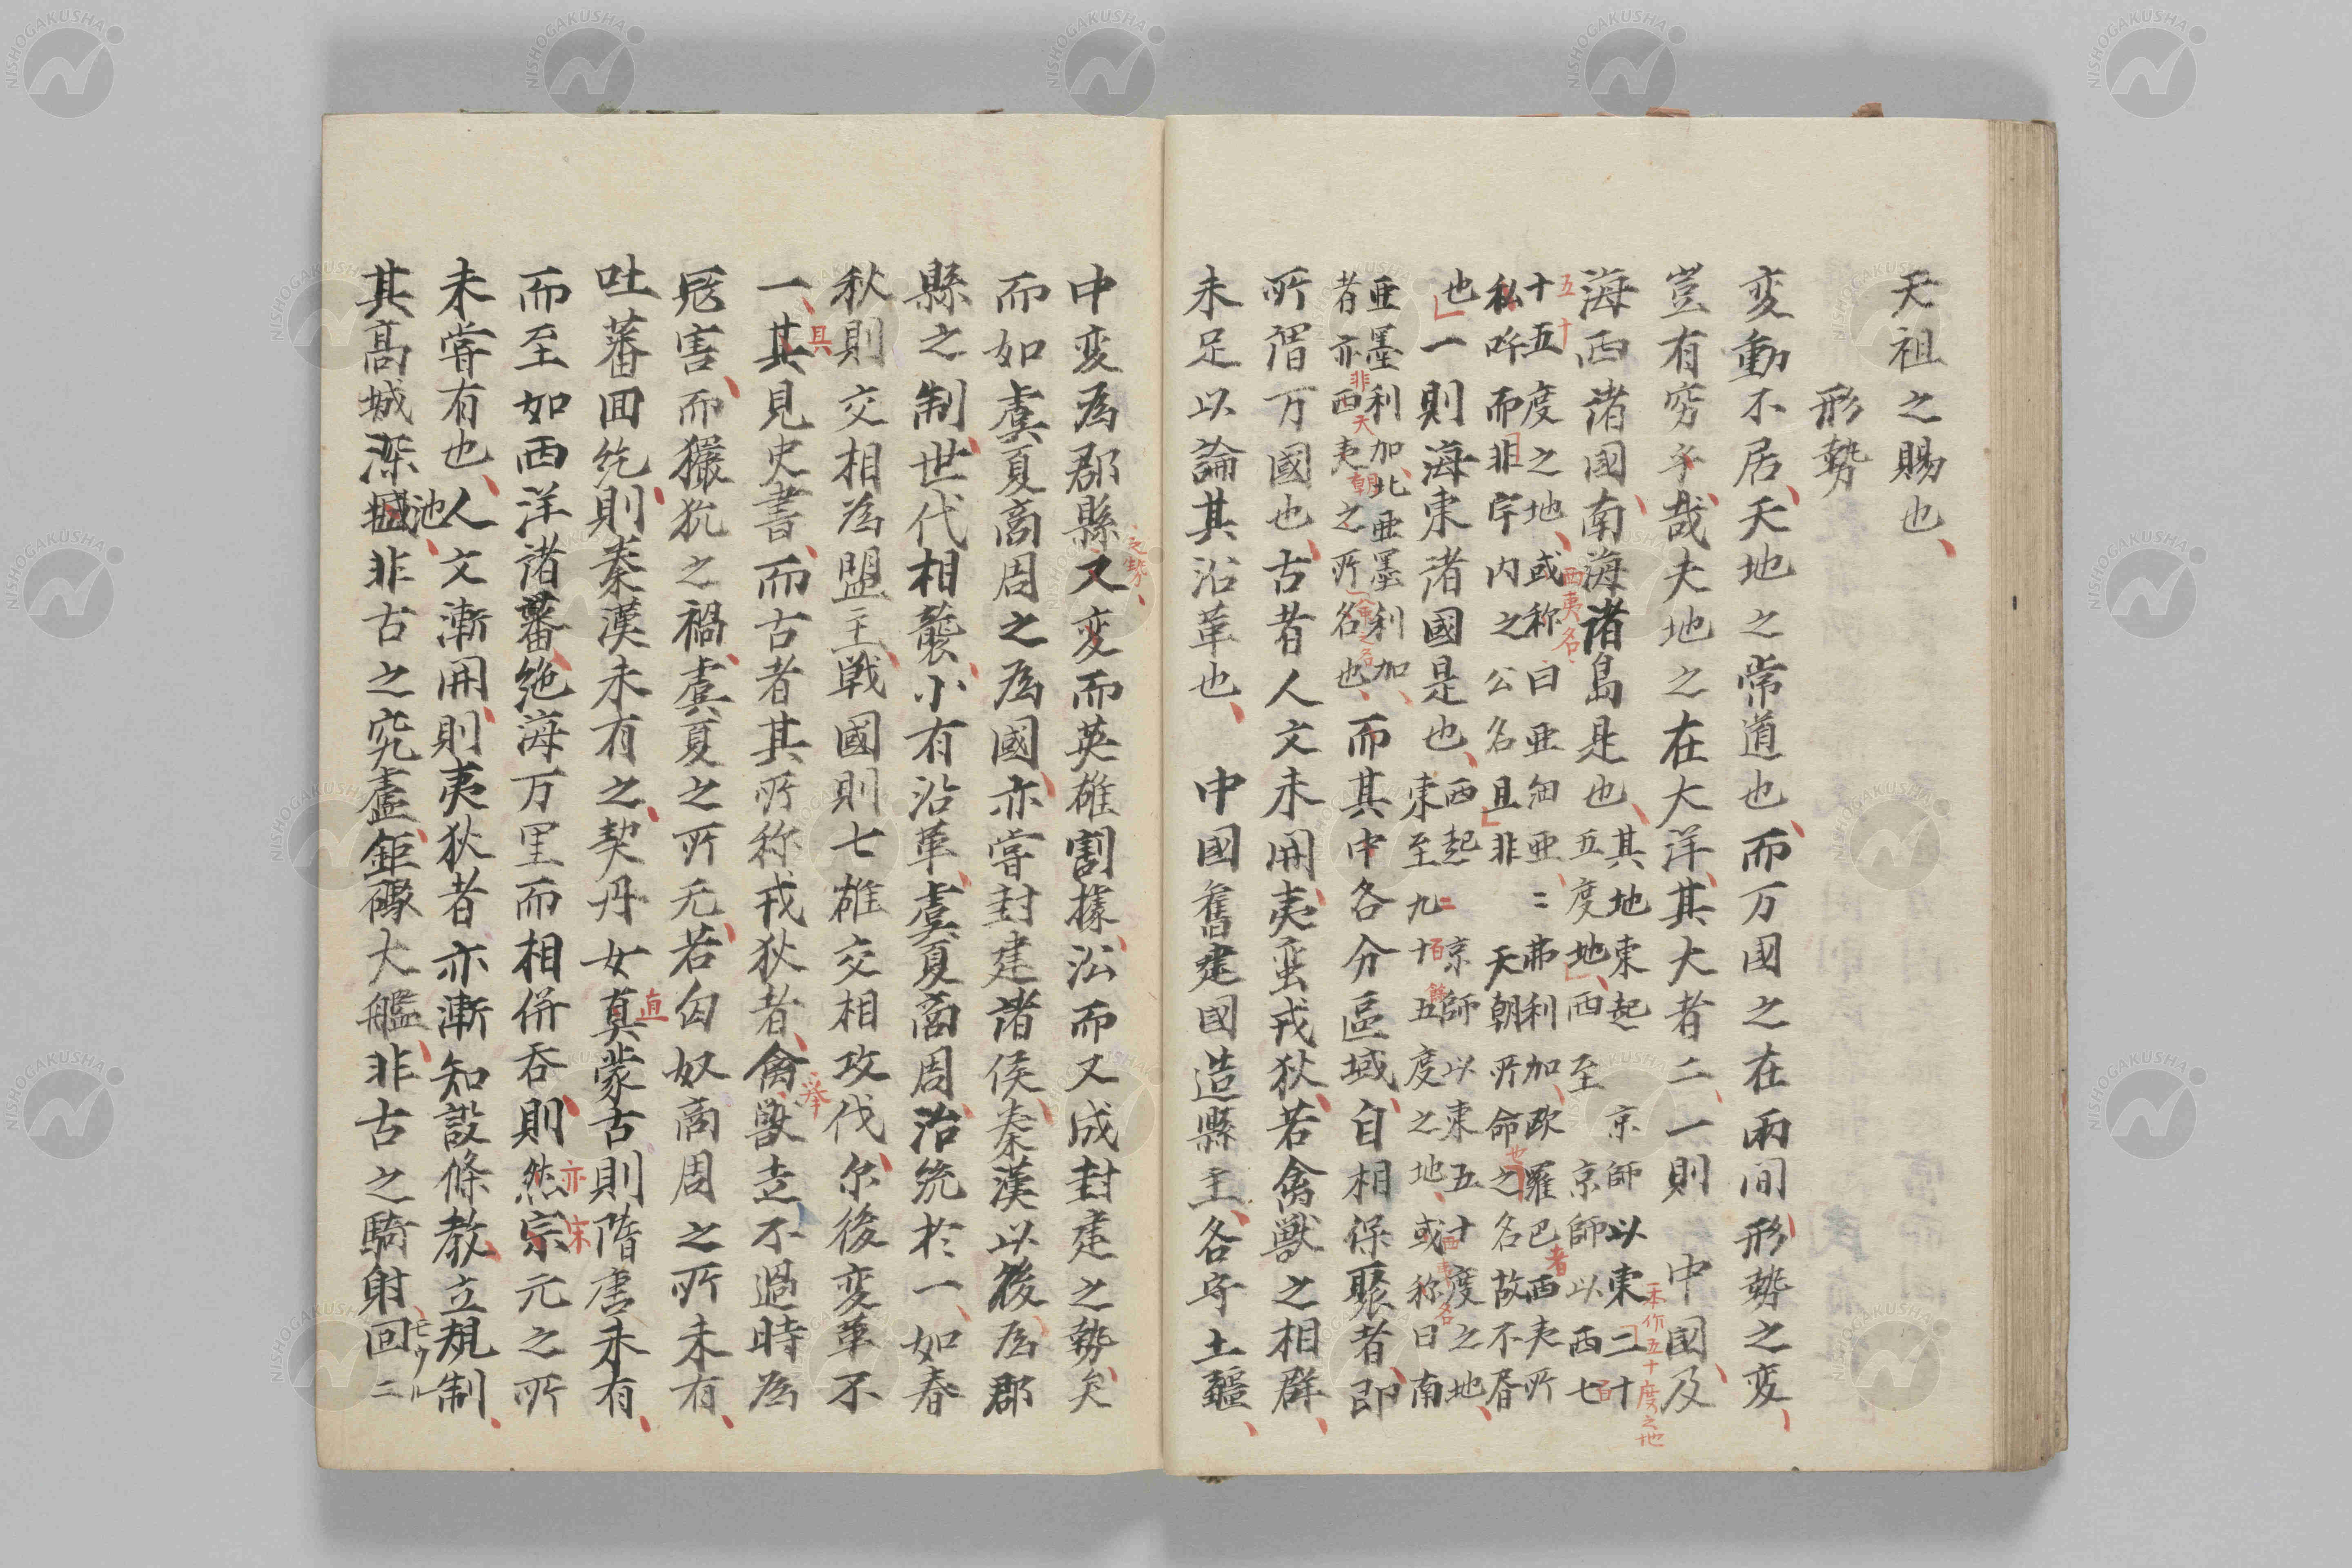 天祖之賜也
形勢
変動不居天地之常道也而万國之在両間形勢之変
豈有窮乎哉夫地之在大洋其大者二一則　中國及
海西諸國南海諸島是也其地東起　京師以東二十
五度地西至　京師以西七
十五度之地或称曰亜細亜二弗利加欧羅巴西夷所
私呼而非宇内之公名且非　天朝所命之名故不㫺
也一則海東諸國是也西起　京師以東五十度之地
東至九十五度之地或称曰南
亜墨利加北亜墨利加
者亦西夷之所名也而其中各分區域自相保聚者即
所謂万國也古者人文未開夷蛮戎狄若禽獣之相群
未足以論其沿革也　中國舊建國造縣主各守土疆
中変為郡縣又変而英雄割據沿而又成封建之勢矣
而如虞夏商周之為國亦嘗封建諸侯秦漢以後為郡
縣之制世代相襲小有沿革虞夏商周治統於一如春
秋則交相為盟主戦國則七雄交相攻伐尓後変革不
一其見史書而古者其所称戎狄者禽獣走不過時為
冦害而玁狁之禍虞夏之所无若匈奴商周之所未有
吐蕃回紇則秦漢未有之契丹女真蒙古則隋唐未有
而至如西洋諸蕃絶海万里而相併呑則然宗元之所
未嘗有也人文漸開則夷狄者亦漸知設條教立規制
其高城深池非古之穹廬鉅礟大艦非古之騎射回二
モウル
之勢
具
挙
直
亦
宋
五十
西夷名
一本作五十度之地
百
者
非
天朝